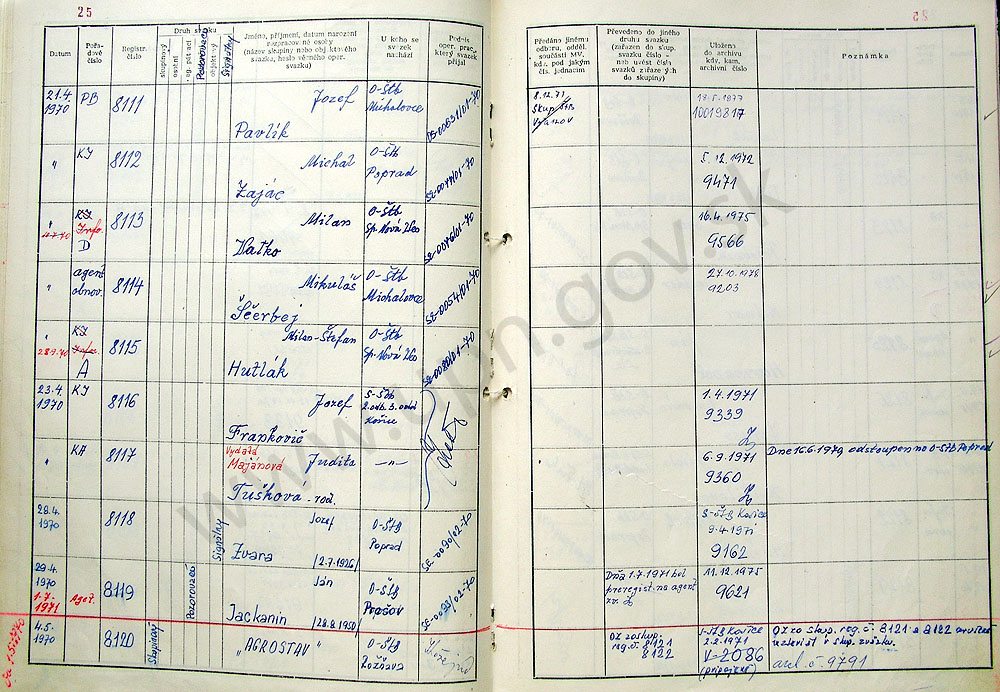 25
Datum
Pořa-
dové
číslo
Registr.
číslo
Druh svazku
skupinový
osobní
Pozorovací
objektový
Signálny
Jméno, příjmení, datum narození
rozpracované osoby
(název skupiny nebo objektového
svazku, heslo věrného oper.
svazku)
U koho se
svazek
nachází
Podpis
oper. prac.,
který svazek
přijal
Předáno jinému
odboru, odděl.
součásti MV,
kdy, pod jakým
čís. jednacím
Převedeno do jiného
druhu svazku
(zařazen do skup.
svazku číslo -
nab uvést čísla
svazků zařazených
do skupiny)
Uloženo
do archivu
kdy, kam,
archivní číslo
Poznámka
21.4.
1970
PB
8111
Jozef
Pavlík
O-Štb
Michalovce
8.12.71
Skup. ŠtB
Vranov
10019817
"
KI
8112
Michal
Zajác
O-Štb
Poprad
SE-0044/01-70
5.12.1972
9471
"
4.7.70
KI
Info.
D
8113
Milan
Vatko
O-Štb
Sp. Nová Ves
SE-0046/01-70
16.4.1975
9566
"
agent
obnov.
8114
Mikuláš
Ščerbej
O-Štb
Michalovce
SE-0054/01-70
27.10.1978
9203
"
28.9.70
KI
Info.
A
8115
Milan-Štefan
Hutlák
O-Štb
Sp. Nová Ves
SE-0080/01-70
23.4.
1970
KI
8116
Jozef
Frankovič
S-Štb
2. odb. 3. odd
Košice
1.4.1971
9339
"
KA
8117
Vydatá
Majánová
Judita
Tušková - rod.
-"-
6.9.1971
9360
Dne 16.6.1979 odstoupen na O-ŠtB Poprad
28.4.
1970
8118
Signálny
Jozef
Zvana
/2.7.1926/
O-ŠtB
Poprad
SE-0090/02-70
S-ŠtB Košice
9.4.1971
9162
29.4.
1970
1.7.
1971
Agent.
8119
Pozorovací
Ján
Jackanin
/28.8.1950/
O-ŠtB
Prešov
SE-0093/02-70
Dňa 1.7.1971 bol
preregist. na agent
zv. Z
11.12.1975
9621
4.5.
1970
8120
Skupinový
"AGROSTAV"
O-ŠtB
Rožňava
OZ zo skup.
reg. č. 8121
8122
S-ŠtB Košice
2.8.1971
V-2086
(pripojené)
OZ zo skup. reg. č. 8121 a 8122
arch. č. 9791
www.upn.gov.sk